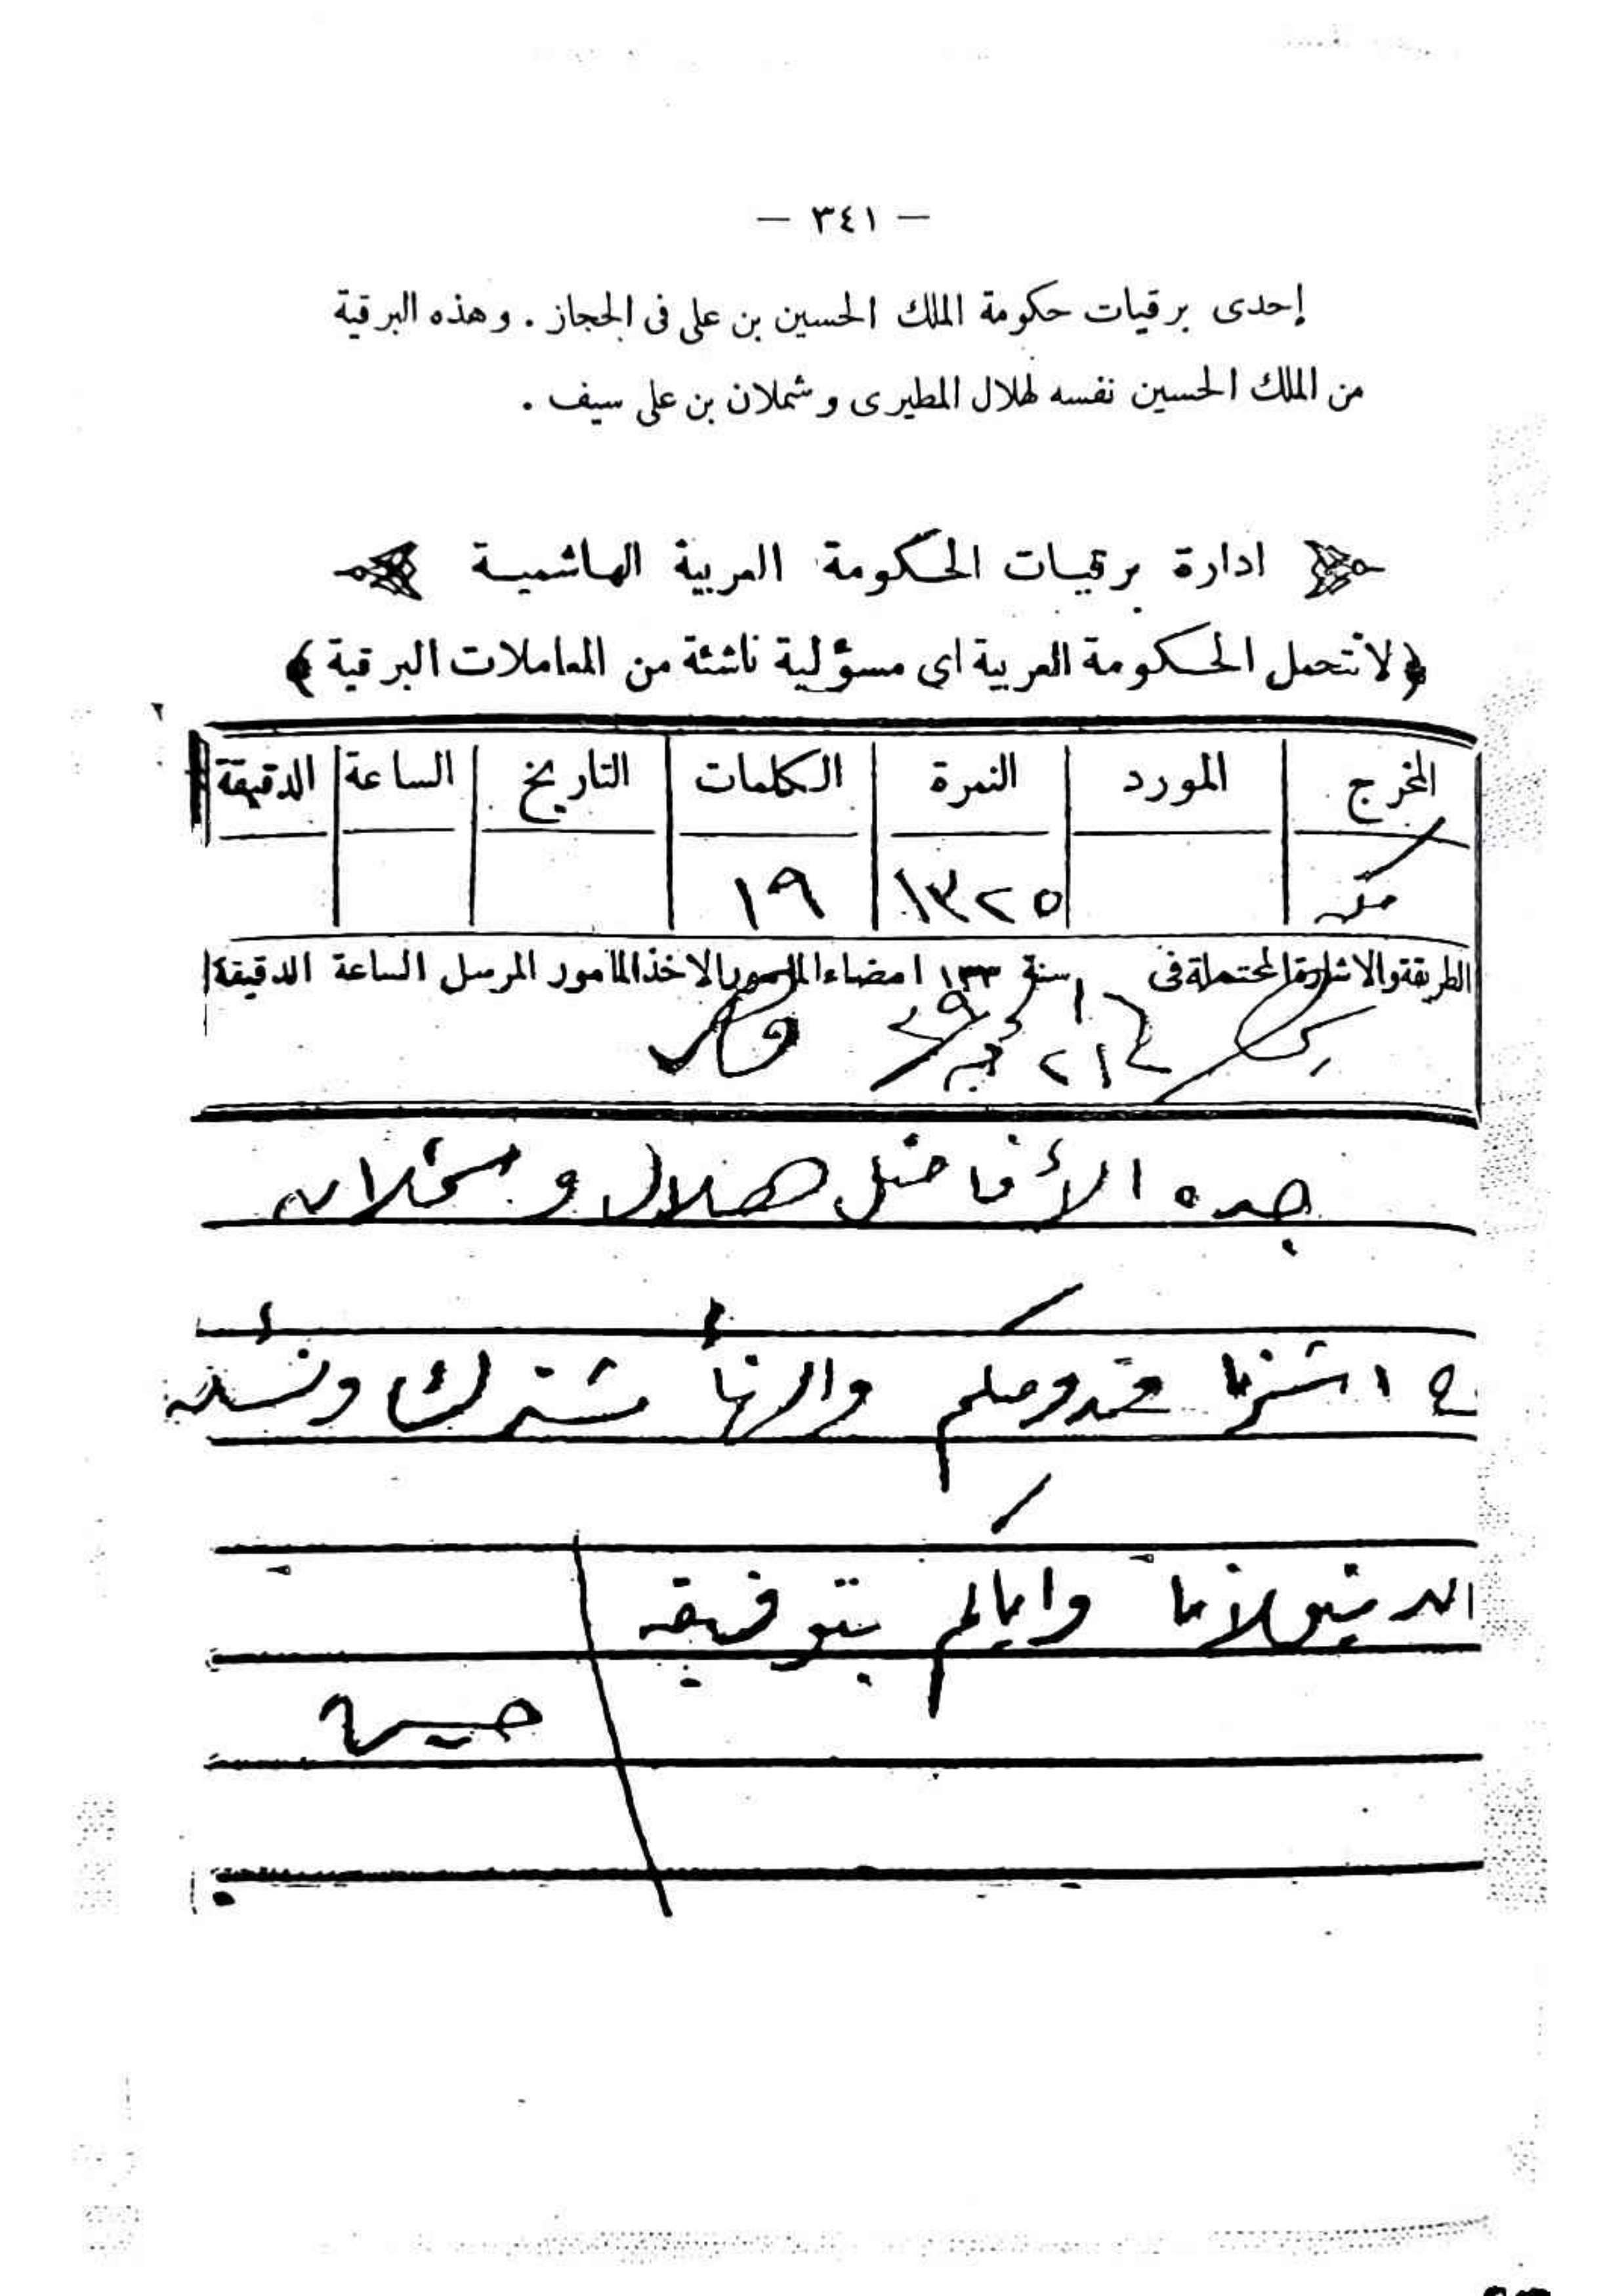 — ٣٤١ —
إحدى برقيات حكومة الملك الحسين بن على فى الحجاز . وهذه البرقية
من الملك الحسين نفسه لهلال المطيرى وشملان بن على سيف .
ادارة برقيات الحكومة العربية الهاشمية
﴿ لا تتحمل الحكومة العربية اى مسؤلية ناشئة من المعاملات البرقية ﴾
المخرج المورد النمرة الكلمات التاريخ الساعة الدقيقة
مكه ١٣٢٥ ١٩
الطريقة والاشارة المحتملة فى سنة ١٣٣ امضاء المأمور الاخذ المأمور المرسل الساعة الدقيقة
٢١
جده الأفاضل هلال وشملان
ج ١ سرنا قدومكم والهنا مشترك ونسئله
ان يتولانا واياكم بتوفيقه
حسين